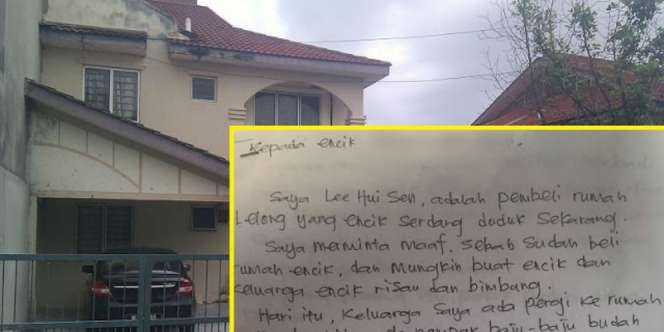 Kepada encik
Saya Lee Hui Sen, adalah pembeli rumah
Lelong yang encik serdang duduk sekarang.
Saya meminta maaf, sebab sudah beli
rumah encik, dan mungkin buat encik dan
keluarga encik risau dan bimbang.
Hari itu, keluarga saya ada pergi ke rumah
nampak baju-baju budah